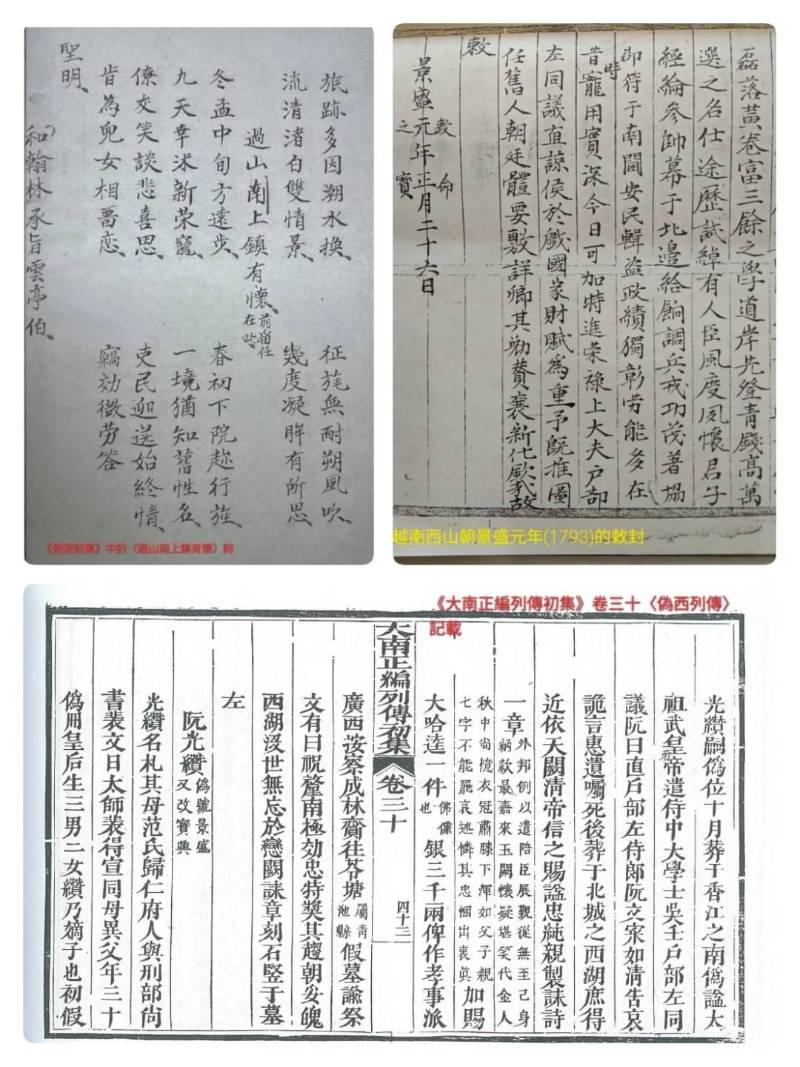 旅跡多因朔水換、 征旄無耐朔風吹、
流清渚白雙情景、 幾度凝眸有所思
過山南上鎮有懷 前畱任在此
冬孟中旬方遠步、 春初下院趂行旌
九天幸沐新荣寵、 一境猶知舊性名、
僚交笑談悲喜思、 吏民迎送始終情、
肯為兒女相畱恋、 竊効微劳答
聖明、
和翰林承旨雲亭伯、
詩集》中的〈過山南上鎮有懷〉詩
磊落黄卷富三餘之學道岸先登青錢高萬
選之名仕途歷試綽有人臣風度夙懷君子
經綸參帥幕于北邊給餉調兵戎功茂著塲
即符于南閫安民輯盗政績獨彰劳能多在
昔時寵用實深今日可加特進荣禄上大夫户部
左同議直諒侯於戲國家財賦為重予既推圖
任舊人朝廷體要敷詳卿其勉賛襄新化欽哉故
敕
景盛元年正月二十六日
敕命之寳
越南西山朝景盛元年(1793)的敕封
《大南正編列傳初集》卷三十〈偽西列傳〉
記載
光纘嗣僞位十月葬于香江之南僞謚太
祖武皇帝遣侍中大學士吳壬戸部左同
議阮曰直戸部左侍郎阮文案如清告哀
詭言惠遺囑死後葬于北城之西湖庶得
近依天闕清帝信之賜謚忠純親製誄詩
一章 外邦例以遣陪臣展覲從無至己身納款最嘉來玉闕懷疑堪笑代金人
秋中尚憶衣冠肅膝下渾如父子親七字不能罷哀述憐其忠悃出衷眞 加賜
大哈達一件 佛像也 銀三千兩俾作孝事派
大南正編列傳初集 卷三十 四十三
廣西按察成林齎徃芩塘 屬青池縣 假墓諭祭
文有曰祝釐南極効忠特奬其趨朝妥魄
西湖沒世無忘於戀闕誄章刻石竪于墓
左
阮光纘 僞號景盛又改寶興
光纘名札其母范氏歸仁府人與刑部尚
書裴文日太師裴得宣同母異父年三十
僞冊皇后生三男二女纘乃嫡子也初假